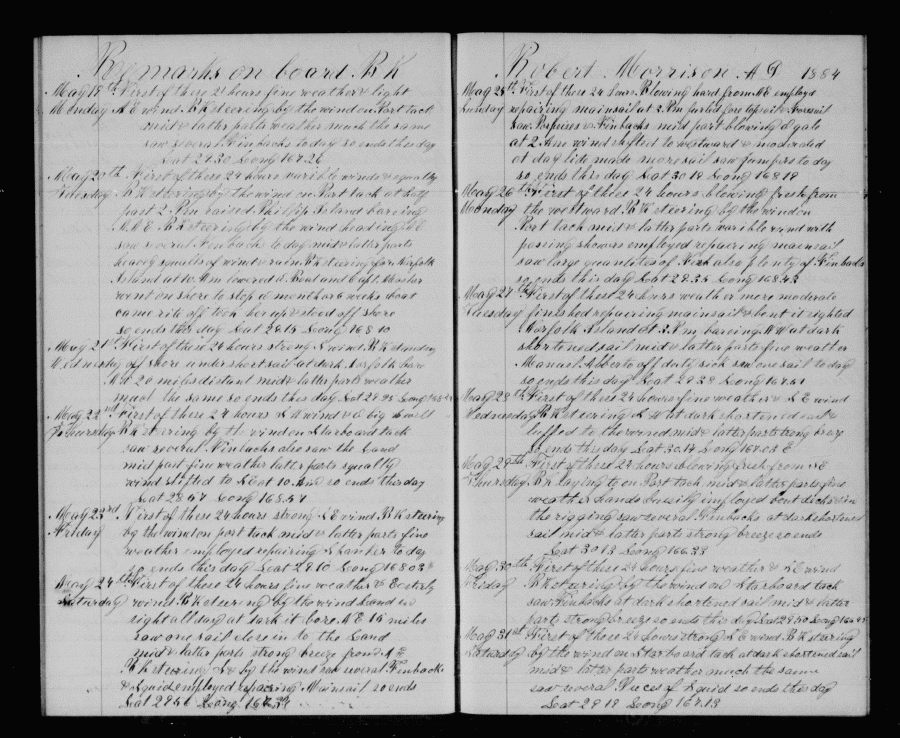 Remarks on board BK
May 19th First of these 24 hours fine weather & light
Monday N E wind BK steering by the wind on Port tack
mid & latter parts weather much the same
saw several Finbacks to day so ends this day
Lat 29.30 Long 167.26
May 20th First of these 24 hours varible winds & squalty
Tuesday BK steering by the wind on Port tack at half
past 2 Pm raised Phillip Island bareing
N N E BK steering by the wind heading
saw several Finbacks to day mid & latter parts
heavy squalls of wind & rain BK steering for Norfolk
Island at 10 Am lowered a Boat and Capt. Mosher
went on shore to stop a month or 6 weeks boat
came rite off took her up & stood off shore
so ends this day Lat 29.15 Long 168.10
May 21st First of these 24 hours strong S wind BK standing
Wednesday off shore under short sail at dark Norfolk bore
20 miles distant mid & latter parts weather
much the same so ends this day Lat 28.58 Long
May 22nd First of these 24 hours S E wind & a big swell
Thursday BK steering by the wind on Starboard tack
saw several Finbacks also saw the Land
mid part fine weather latter parts squalty
wind shifted to S E at 10 Am so ends this day
Lat 28.57 Long 168.57
May 23rd First of these 24 hours strong S E wind BK steering
Friday by the wind on port tack mid & latter parts fine
weather employed repairing Spanker to day
so ends this day Lat 29.10 Long 168.03
May 24th First of these 24 hours fine weather & Easterly
Saturday wind BK steering by the wind Land in
sight all day at dark it bore N E 15 miles
saw one sail close in to the Land
mid & latter parts strong breeze from N E
BK steering by the wind saw several Finbacks
& Squid employed repairing Mainsail so ends
Lat 29.56 Long
Robert Morrison A D 1884
May 25th First of these 24 hours Blowing hard from N E employd
Sunday repairing mainsail at 3 Pm furled fore topsail & Foresail
saw Porpoises & Finbacks mid part blowing a gale
at 2 Am wind shifted to westward & moderated
at day lite made more sail saw jumpers to day
so ends this day Lat 30.19 Long 168.19
May 26th First of these 24 hours blowing fresh from
Monday the westward BK steering by the wind on
Port tack mid & latter parts varible wind with
passing showers employed repairing mainsail
saw large quanteties of Fish also plenty of Finbacks
so ends this day Lat 29.35 Long 168.43
May 27th First of these 24 hours weather more moderate
Tuesday finished repairing mainsail & bent it sighted
Norfolk Island at 3 Pm bareing N W at dark
shortened sail mid & latter parts fine weather
Manuel Alberto off duty sick saw one sail to day
so ends this day Lat 29.29 Long 167.51
May 28th First of these 24 hours fine weather & S E wind
Wednesday BK steering S W at dark shortened sail &
luffed to the wind mid & latter parts strong breeze
so ends this day Lat 30.14 Long 167.05 E
May 29th First of these 24 hours blowing fresh from S E
Thursday BK laying to on Port tack mid & latter parts fine
weather hands busily employed bout decks & in
the rigging saw several Finbacks at dark shortened
sail mid & latter parts strong breeze so ends
Lat 30.13 Long 166.33
May 30th First of these 24 hours fine weather & S E wind
Friday BK steering by the wind on Starboard tack
saw Finbacks at dark shortened sail mid & latter
parts strong breeze so ends this day Lat 29.50 Long
May 31st First of these 24 hours strong S E wind BK steering
Saturday by the wind on Starboard tack at dark shortened sail
mid & latter parts weather much the same
saw several Pieces of Squid so ends this day
Lat 29.19 Long 167.13